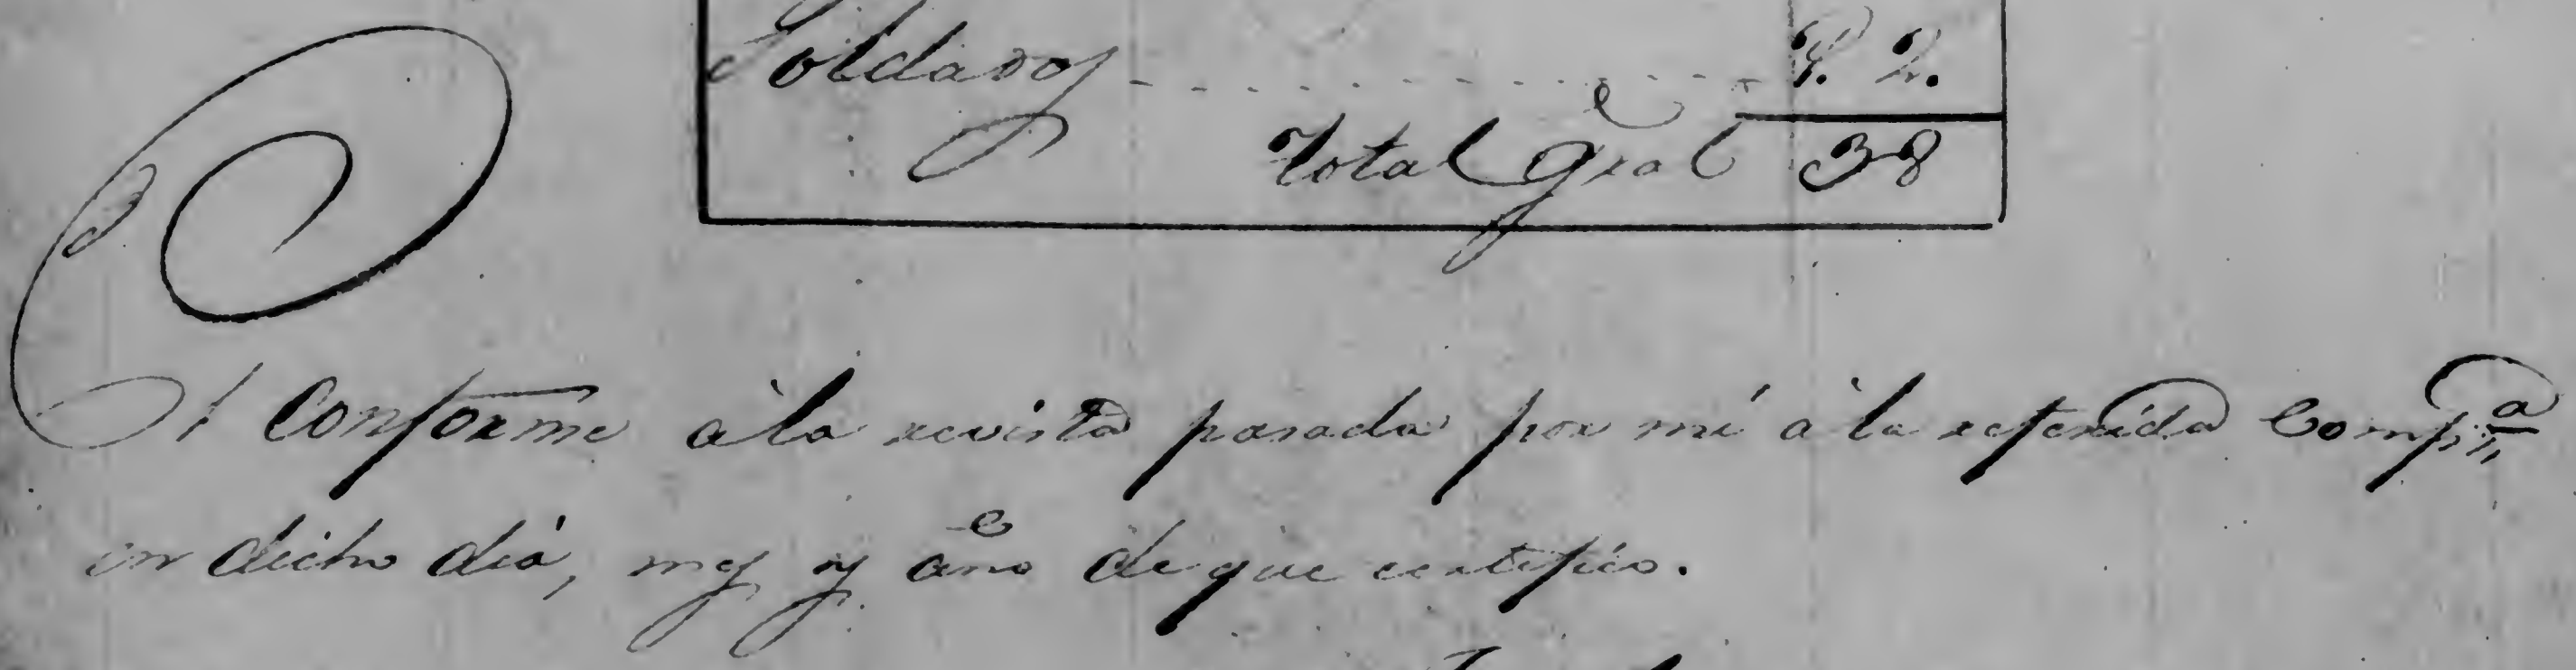 Soldados 2.
Total gral 38
Conforme á la revista pasada por mí á la referida Compª
en dicho diá, mes y año de que certifico.